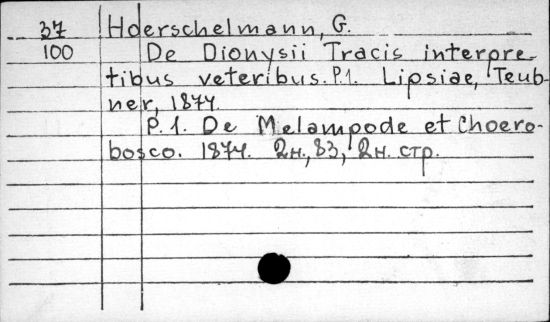 37 Hoerschelmann, G.
100 De Dionysii Tracis interpre-
tibus veteribus. P.1. Lipsiae, Teub-
ner, 1874.
P. 1. De Melampode et Choero-
bosco. 1874. 2н., 83, 2н. стр.